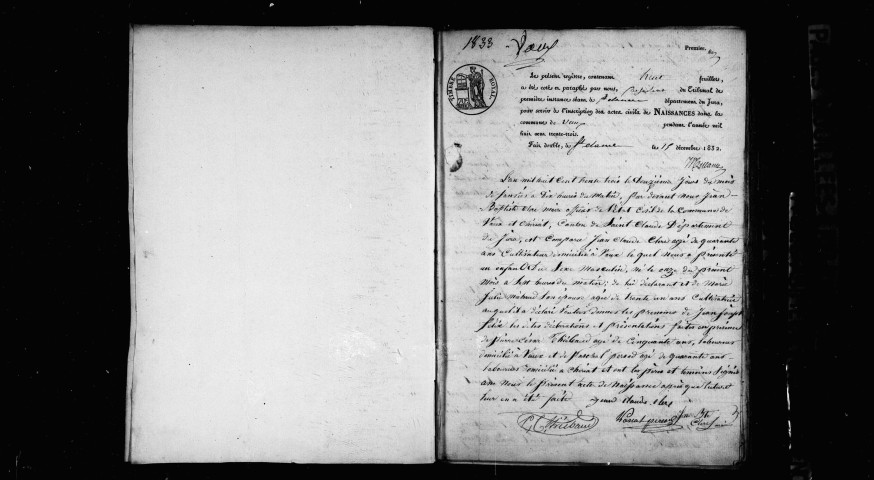 1833 - Vaux
Premier.
TIMBRE ROYAL
Le présent registre, contenant huit feuillets,
a été coté et paraphé par nous, président du Tribunal de
première instance séant à St Claude département du Jura,
pour servir à l'inscription des actes civils de NAISSANCES dans la
commune de Vaux pendant l'année mil
huit cent trente-trois.
Fait double, à St Claude le 15 décembre 1832.
L'an mil huit cent trente trois le douzième jour du mois
de janvier à dix heures du matin, par devant nous Jean
Baptiste Clerc maire officier de l'Etat Civil de la Commune de
Vaux et Chiriat, Canton de Saint Claude Département
du Jura, est Comparu Jean Claude Clerc agé de quarante
ans Cultivateur domicilié à Vaux le quel nous a présenté
un enfant du Sexe Masculin, né le onze du présent
mois à sept heures du matin, de lui déclarant et de Marie
Julie Mabaud son épouse agée de trente un ans Cultivatrice
auquel il a déclaré vouloir donner les prénoms de Jean Joseph
Félix les dites déclarations et présentations faites en présence
de Pierre César Thiébaud agé de Cinquante ans, laboureur
domicilié à Vaux et de Paschal perrod agé de quarante ans
laboureur domicilié à Chiriat et ont les père et témoins signés
avec nous le présent acte de Naissance après que lecture
leur en a été faite
jean claude clerc
P C Thiébaud
Jean Bte
Clerc